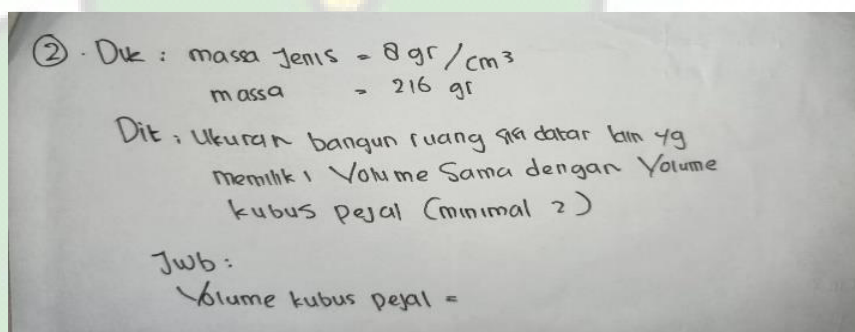 ② . Dik : massa Jenis = 8 gr/cm³
massa = 216 gr
Dit : Ukuran bangun ruang sisi datar lain yg
memiliki Volume Sama dengan Volume
kubus pejal (minimal 2)
Jwb :
Volume kubus pejal =